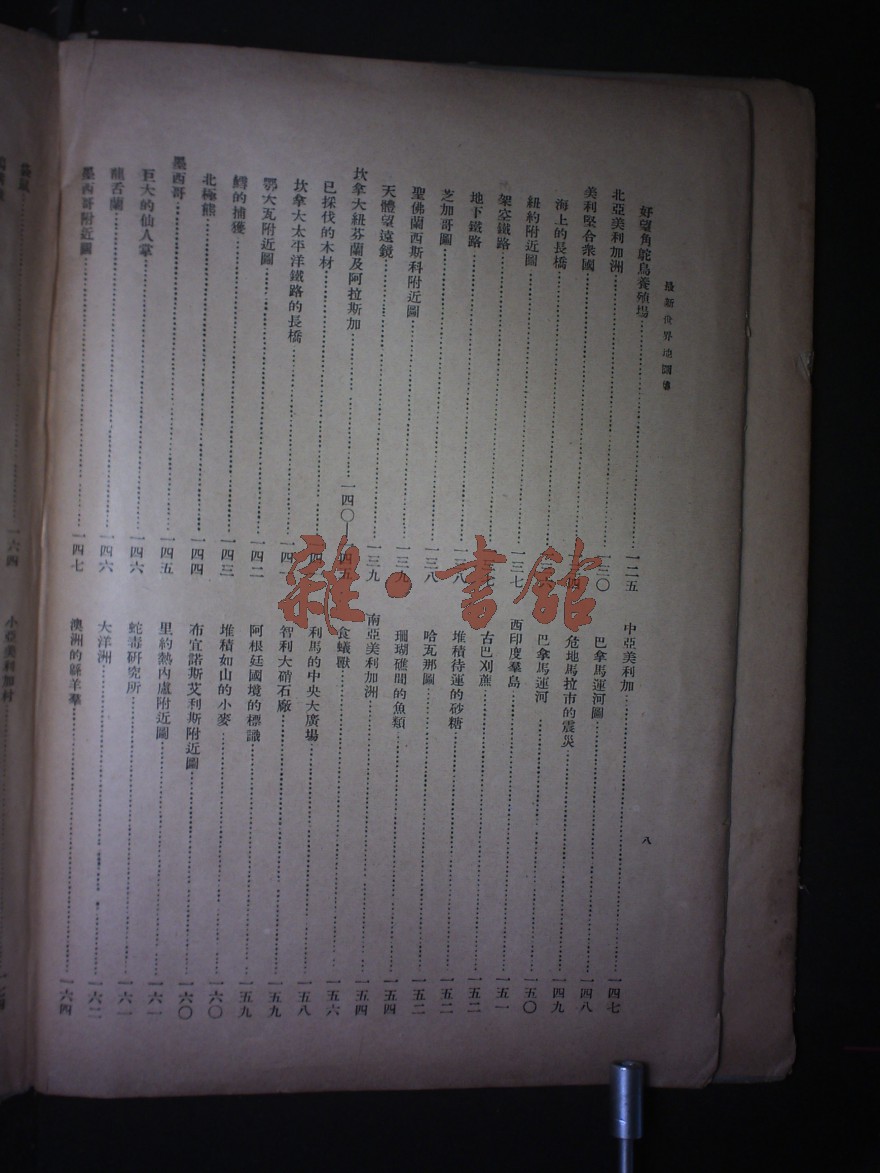 最新世界地圖
好望角鴕鳥養殖場 一二五
北亞美利加洲 一三〇
美利堅合衆國 四
海上的長橋
紐約附近圖 一三七
架空鐵路 七
地下鐵路 八
芝加哥圖 一三八
聖佛蘭西斯科附近圖 一三九
天體望遠鏡 一三九
坎拿大紐芬蘭及阿拉斯加 一四〇—一四五
已採伐的木材 一四
坎拿大太平洋鐵路的長橋 一四一
鄂大瓦附近圖 一四二
鱈的捕獲 一四三
北極熊 一四四
墨西哥 一四五
巨大的仙人掌 一四六
龍舌蘭 一四六
墨西哥附近圖 一四七
中亞美利加 一四七
巴拿馬運河圖 一四八
危地馬拉市的震災 一四九
巴拿馬運河 一五〇
西印度羣島 一五一
古巴刈蔗 一五二
堆積待運的砂糖 一五二
哈瓦那圖 一五二
珊瑚礁間的魚類 一五四
南亞美利加洲 一五四
食蟻獸 一五六
利馬的中央大廣場 一五八
智利大硝石廠 一五九
阿根廷國境的標識 一五九
堆積如山的小麥 一六〇
布宜諾斯艾利斯附近圖 一六〇
里約熱內盧附近圖 一六一
蛇毒研究所 一六一
大洋洲 一六二
澳洲的緜羊羣 一六四
八
袋鼠 一六四
小亞美利加村
雜·書館